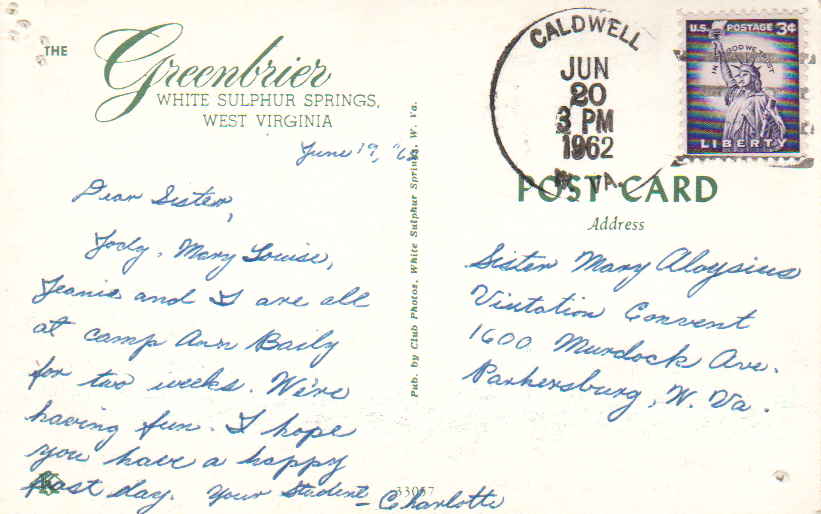 THE
Greenbrier
WHITE SULPHUR SPRINGS,
WEST VIRGINIA
June 19, '62
Dear Sister,
Jody, Mary Louise,
Jeanie and I are all
at camp Ann Baily
for two weeks. We're
having fun. I hope
you have a happy
feast day. Your Student - Charlotte
33057
Pub. by Club Photos, White Sulphur Springs, W. Va.
CALDWELL
JUN
20
3 PM
1962
W. VA.
U.S. POSTAGE 3¢
IN GOD WE TRUST
LIBERTY
POST CARD
Address
Sister Mary Aloysius
Visitation Convent
1600 Murdock Ave.
Parkersburg, W. Va.